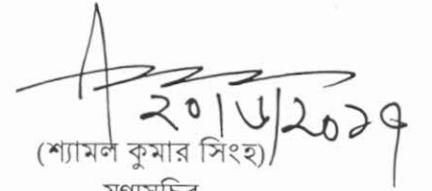 ২০/৬/২০১৭
(শ্যামল কুমার সিংহ)